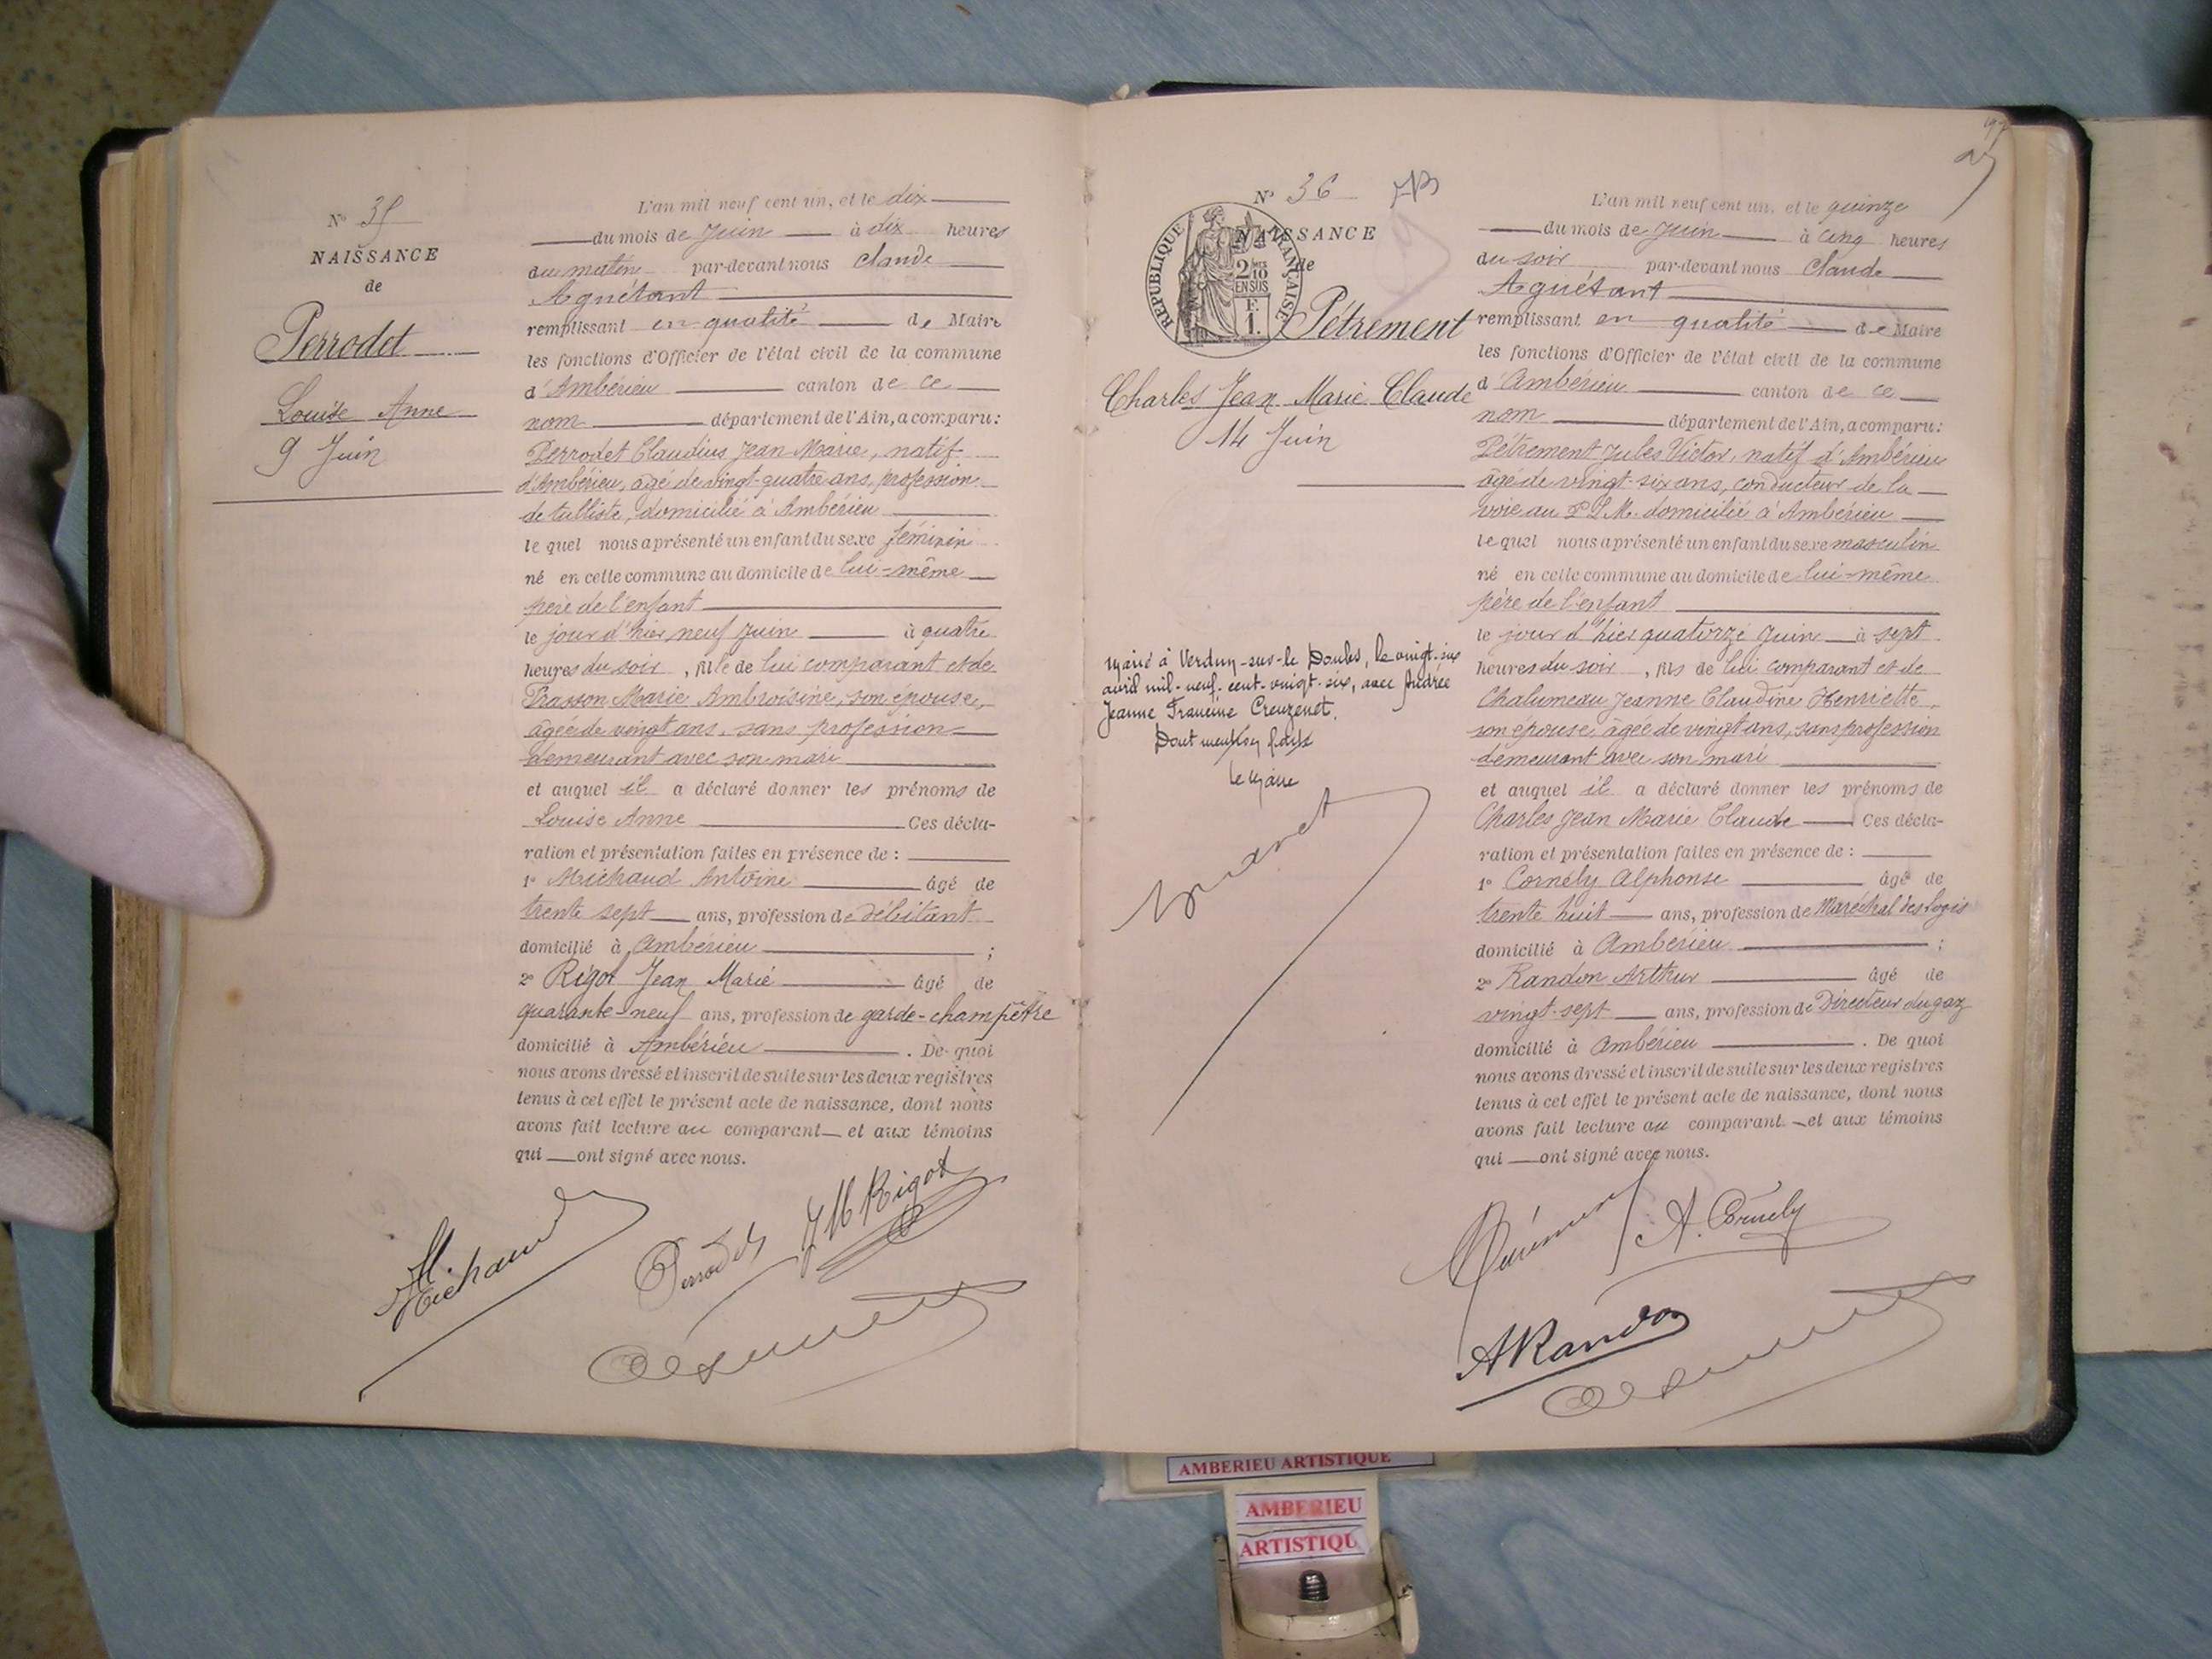 N° 35
NAISSANCE
de
Perrodet
Louise Anne
9 Juin
L'an mil neuf cent un, et le dix
du mois de Juin à dix heures
du matin par-devant nous Claude
Aguétant
remplissant en qualité de Maire
les fonctions d'Officier de l'état civil de la commune
d'Ambérieu canton de ce
nom département de l'Ain, a comparu:
Perrodet Claudius Jean Marie, natif
d'Ambérieu, âgé de vingt-quatre ans, profession
de tulliste, domicilié à Ambérieu
le quel nous a présenté un enfant du sexe féminin
né en cette commune au domicile de lui-même
père de l'enfant
le jour d'hier neuf Juin à quatre
heures du soir, fille de lui comparant et de
Marie Ambroisine, son épouse,
âgée de vingt ans, sans profession
demeurant avec son mari
et auquel il a déclaré donner les prénoms de
Louise Anne Ces décla-
ration et présentation faites en présence de :
1° Michaud Antoine âgé de
trente sept ans, profession de débitant
domicilié à Ambérieu ;
2° Rigot Jean Marie âgé de
quarante-neuf ans, profession de garde-champêtre
domicilié à Ambérieu . De quoi
nous avons dressé et inscrit de suite sur les deux registres
tenus à cet effet le présent acte de naissance, dont nous
avons fait lecture au comparant et aux témoins
qui ont signé avec nous.
Michaud
Perrodet
JM Rigot
N° 36
NAISSANCE
de
RÉPUBLIQUE FRANÇAISE
2/10
EN SUS
F.
1.
Pétrement
Charles Jean Marie Claude
14 Juin
Marié à Verdun-sur-le Doubs, le vingt-six
avril mil-neuf-cent-vingt-six, avec Andrée
Jeanne Francine Creuzenet.
Dont mention faite
Le Maire
L'an mil neuf cent un, et le quinze
du mois de Juin à cinq heures
du soir par-devant nous Claude
Aguétant
remplissant en qualité de Maire
les fonctions d'Officier de l'état civil de la commune
d'Ambérieu canton de ce
nom département de l'Ain, a comparu:
Pétrement Jules Victor, natif d'Ambérieu
âgé de vingt-six ans, conducteur de la
voie au P.L.M. domicilié à Ambérieu
le quel nous a présenté un enfant du sexe masculin
né en cette commune au domicile de lui-même
père de l'enfant
le jour d'hier quatorze Juin à sept
heures du soir, fils de lui comparant et de
Chalumeau Jeanne Claudine Henriette,
son épouse, âgée de vingt ans, sans profession
demeurant avec son mari
et auquel il a déclaré donner les prénoms de
Charles Jean Marie Claude Ces décla-
ration et présentation faites en présence de :
1° Cornély Alphonse âgé de
trente huit ans, profession de Maréchal des Logis
domicilié à Ambérieu ;
2° Randon Arthur âgé de
vingt-sept ans, profession de Directeur du gaz
domicilié à Ambérieu . De quoi
nous avons dressé et inscrit de suite sur les deux registres
tenus à cet effet le présent acte de naissance, dont nous
avons fait lecture au comparant et aux témoins
qui ont signé avec nous.
A. Cornély
A Randon
AMBERIEU ARTISTIQUE
AMBERIEU
ARTISTIQU